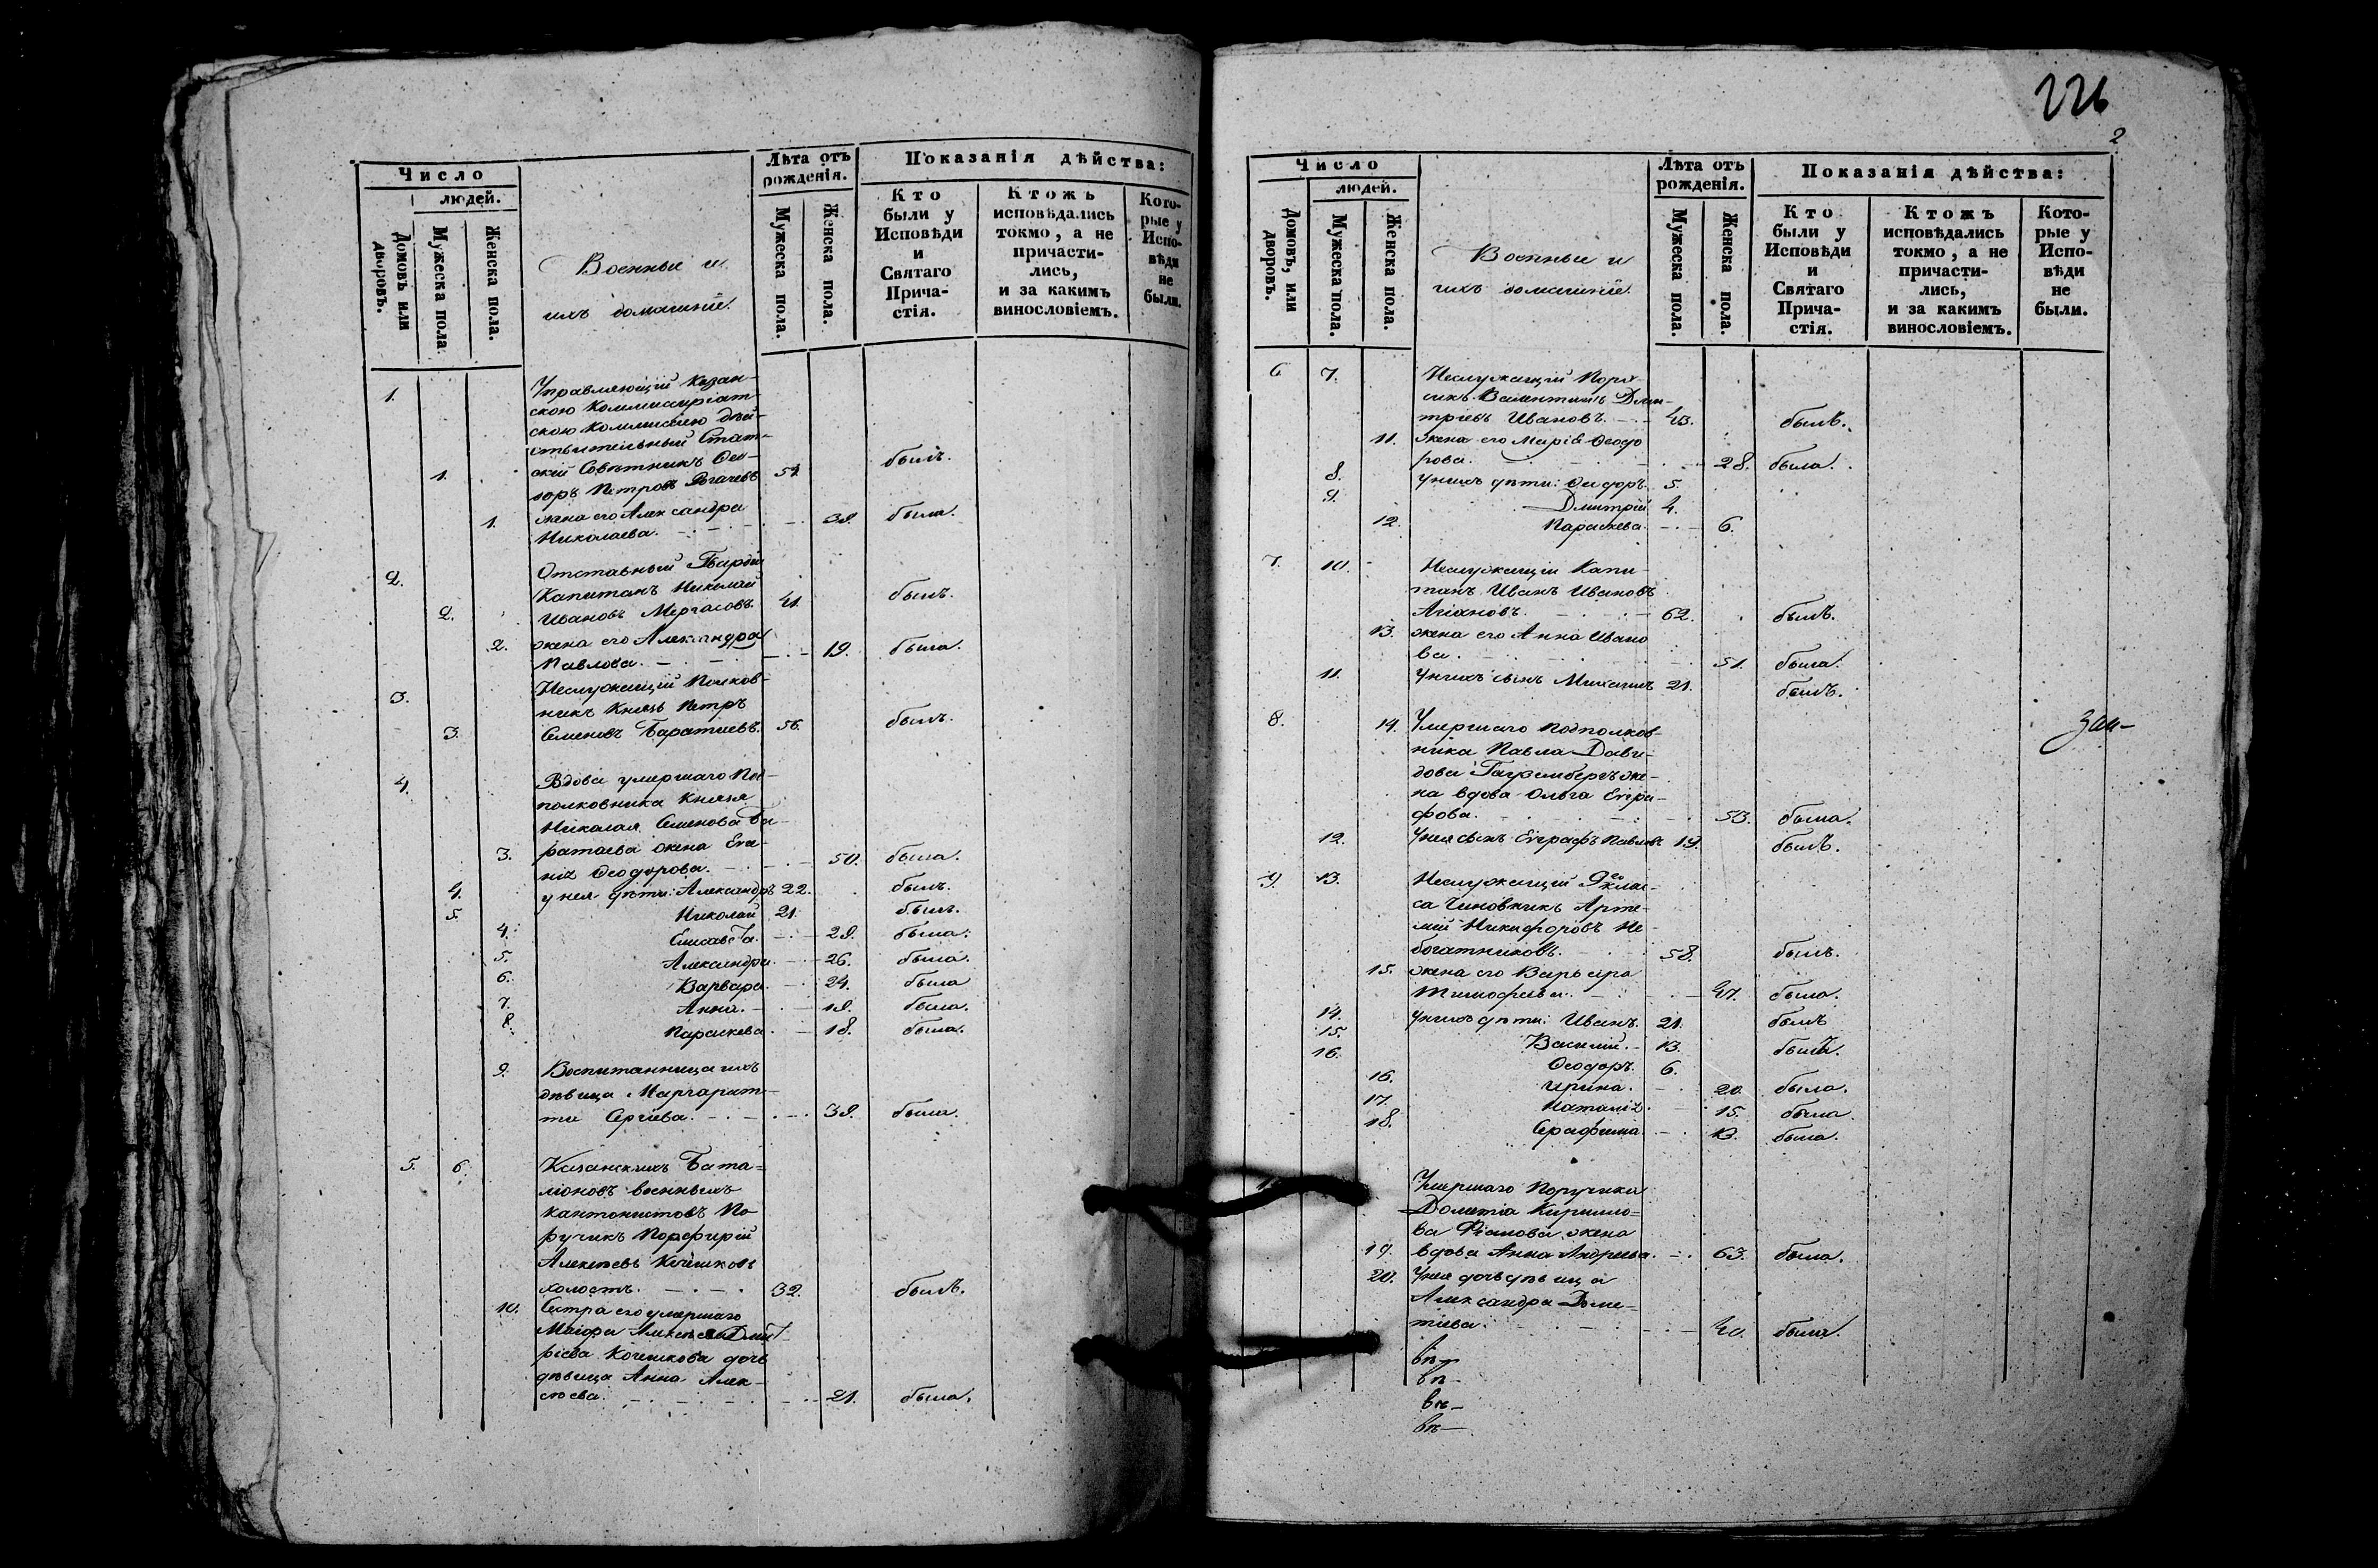 Число
людей.
Домовъ или дворовъ.
Мужеска пола.
Женска пола.
Военные и
ихъ домашніе.
Лѣта отъ рожденія.
Мужеска пола.
Женска пола.
Показанія дѣйства:
Кто были у Исповѣди и Святаго Причастія.
Ктожъ исповѣдались токмо, а не причастились, и за какимъ винословіемъ.
Которые у Исповѣди не были.
1.
Управляющій Казан-
скою Коммиссаріат-
скою Коммиссіею дѣй-
ствительный Стат-
1. скій Совѣтникъ Ѳео-
доръ Петровъ 54. былъ.
1. жена его Александра
Николаева. 38. была.
2. Отставный Гвардіи
Капитанъ Николай
2. Ивановъ Мергасовъ 41. былъ.
2. жена его Александра
Павлова. 19. была.
3. Неслужащій Полков-
никъ Князь Петръ
3. Семеновъ Баратаевъ. 56. былъ.
4. Вдова умершаго Под-
полковника Князя
Николая Семенова Ба-
3. ратаева жена Евге-
нія Ѳеодорова. 50. была.
4. у нея дѣти: Александръ 22. былъ.
5. Николай 21. былъ.
4. Елисавета. 28. была.
5. Александра. 26. была.
6. Варвара. 24. была
7. Анна. 19. была.
8. Параскева. 18. была.
9. Воспитанница ихъ
дѣвица Маргарит-
та Сергѣева. 38. была.
5. 6. Казанскихъ Бата-
ліоновъ военныхъ
кантонистовъ По-
ручикъ Порфирій
Алексѣевъ
холостъ. 32. былъ.
10. Сестра его умершаго
Маіора Алексѣя Дмит-
ріева Кочешкова дочь
дѣвица Анна Алек-
сѣева. 21. была.
226
2
Число
людей.
Домовъ, или дворовъ.
Мужеска пола.
Женска пола.
Военные и
ихъ домашніе.
Лѣта отъ рожденія.
Мужеска пола.
Женска пола.
Показанія дѣйства:
Кто были у Исповѣди и Святаго Причастія.
Ктожъ исповѣдались токмо, а не причастились, и за какимъ винословіемъ.
Которые у Исповѣди не были.
6 7. Неслужащій Пору-
чикъ Валентинъ Дми-
тріевъ Ивановъ. 43. былъ.
11. жена его Марія Ѳеодо
рова. 28. была.
8. у нихъ дѣти: Ѳеодоръ. 5.
9. Дмитрій 4.
12. Параскева. 6.
7. 10. Неслужащій Капи-
танъ Иванъ Ивановъ
62. былъ.
13. жена его Анна Ивано
ва. 51. была.
11. У нихъ сынъ Михаилъ 21. былъ.
8. 14. Умершаго Подполков-
ника Павла Дави-
дова Гаузенбергъ же-
на вдова Ольга Евгра-
фова. 53. была.
12. У нея сынъ Евграфъ Павловъ 19. былъ.
9. 13. Неслужащій 9го клас-
са Чиновникъ Арте-
мій Никифоровъ Не-
богатиковъ. 58. былъ.
15. жена его Варвара
Тимофеева. 47. была.
14. у нихъ дѣти: Иванъ. 21. былъ
15. Василій. 13. былъ.
16. Ѳеодоръ. 6.
16. Ирина. 20. была.
17. Наталія. 15. была
18. Серафима. 13. была.
Умершаго Поручика
Дометія Кирилло-
ва жена
19. вдова Анна Андреева. 63. была.
20. У нея дочь дѣвица
Александра Доме-
тіева. 40. была.